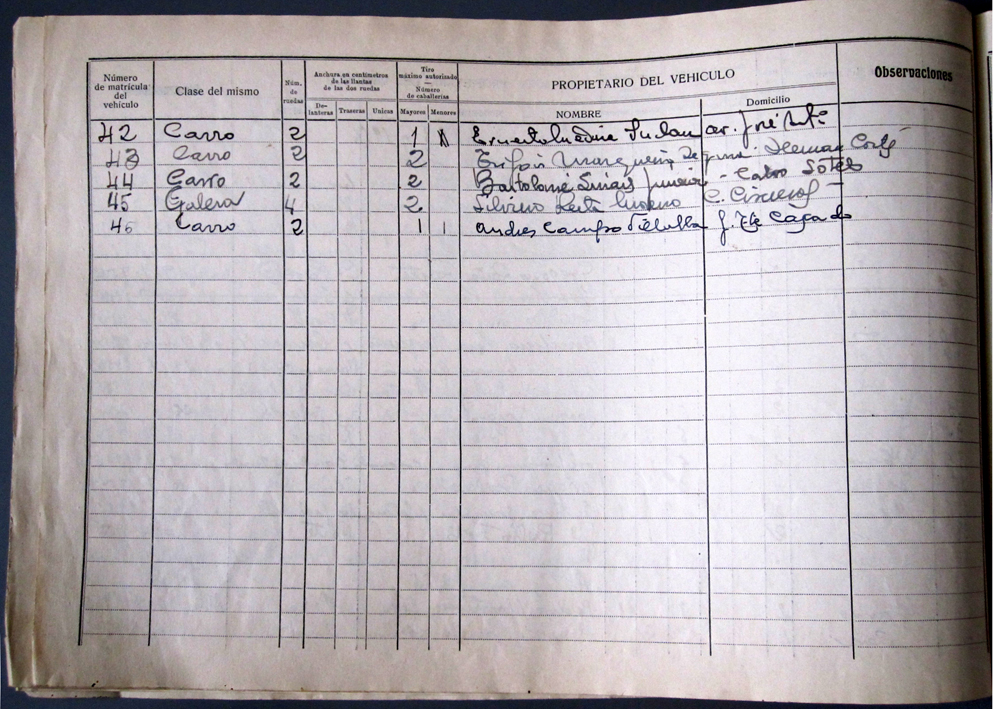 Número de matrícula del vehículo
Clase del mismo
Núm. de ruedas
Anchura en centímetros de las llantas de las dos ruedas
Delanteras Traseras Unicas
Tiro máximo autorizado — Número de caballerías
Mayores Menores
PROPIETARIO DEL VEHICULO
NOMBRE Domicilio
Observaciones
42 Carro 2 1 Ernesto av. José
43 Carro 2 2 Hernan Cortés
44 Carro 2 2 Bartolomé - Calvo Sotelo
45 Galera 4 2 Silvino C. Cisneros
46 Carro 2 1 1 Andres Campos Villalba